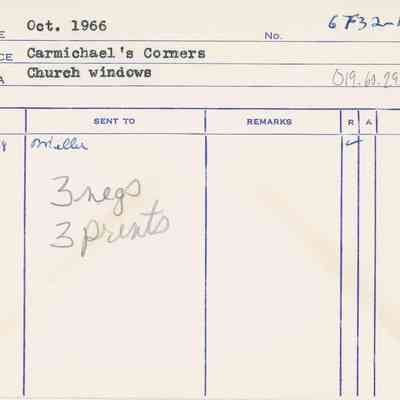 E Oct. 1966 No. 6F32-
CE Carmichael's Corners
A Church windows 019.60.29
SENT TO REMARKS R A
Meller ✓
3 negs
3 prints